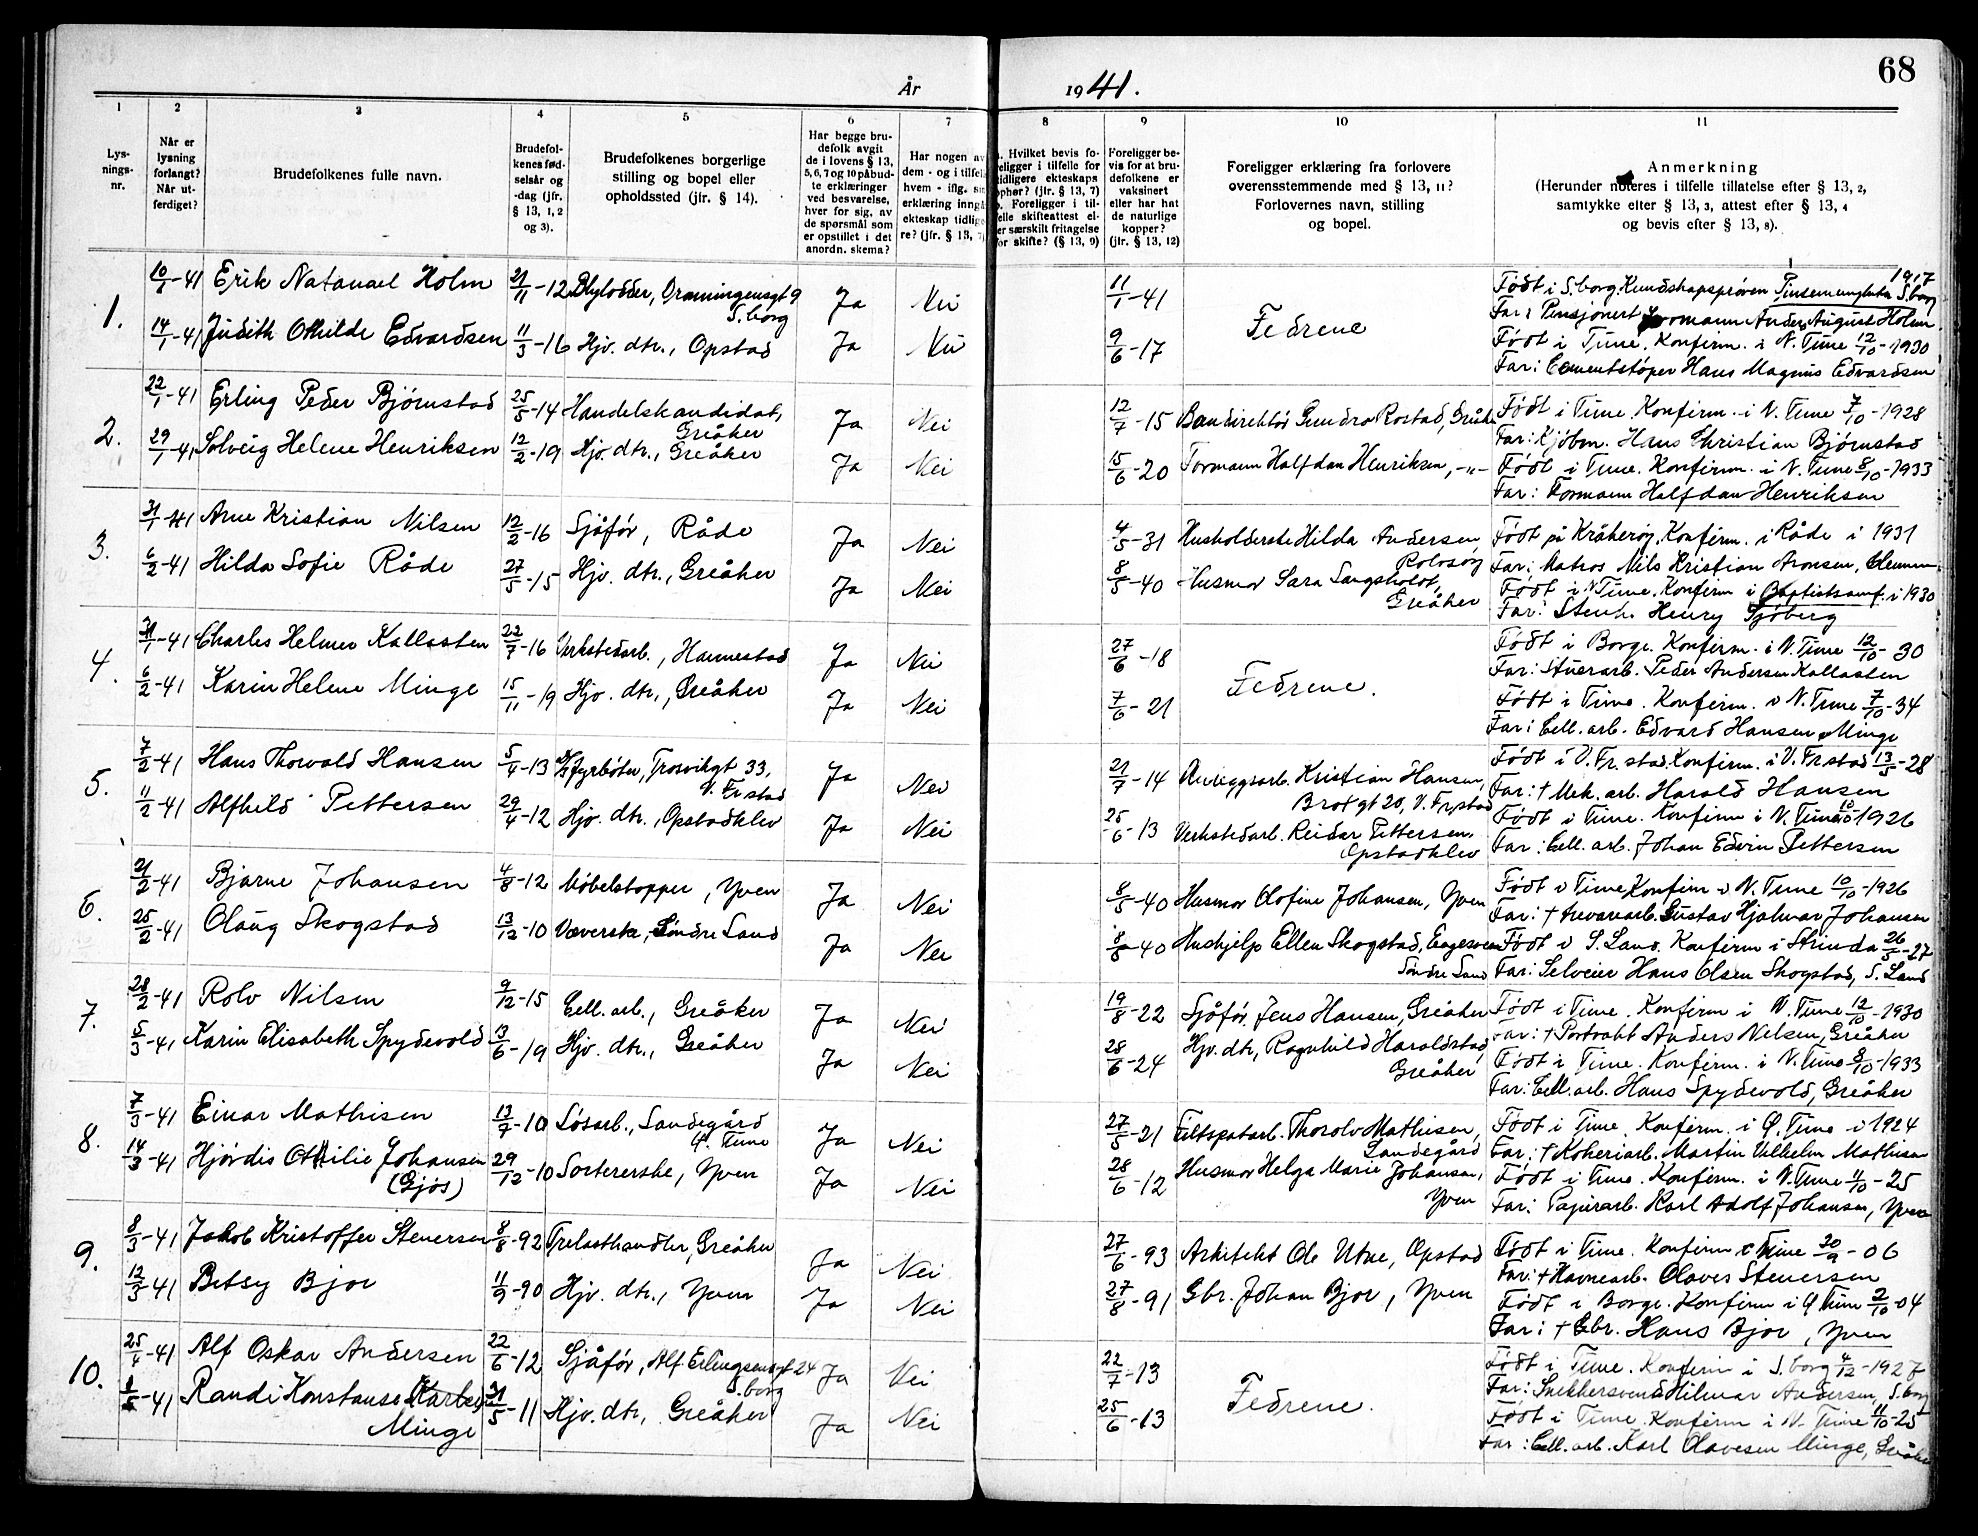 68
År 1941.
1 2 3 4 5 6 7 8 9 10 11
Lys-
nings-
nr.
Når er
lysning
forlangt?
Når ut-
ferdiget?
Brudefolkenes fulle navn.
Brudefol-
kenes fød-
selsår og
-dag (jfr.
§ 13, 1, 2
og 3).
Brudefolkenes borgerlige
stilling og bopel eller
opholdssted (jfr. § 14).
Har begge bru-
defolk avgit
de i lovens § 13,
5, 6, 7 og 10 påbud-
te erklæringer
ved besvarelse,
hver for sig, av
de spørsmål som
er opstillet i det
anordn. skema?
Har nogen av
dem - og i tilfel
hvem - iflg. sin
erklæring inngå
ekteskap tidlige
re? (jfr. § 13, 7)
. Hvilket bevis fo-
religger i tilfelle for
tidligere ekteskaps
ophør? (jfr. § 13, 7)
. Foreligger i til-
felle skifteattest el-
er særskilt fritagelse
for skifte? (§ 13, 9)
Foreligger be-
vis for at bru-
defolkene er
vaksinert
eller har hat
de naturlige
kopper?
(jfr. § 13, 12)
Foreligger erklæring fra forlovere
overensstemmende med § 13, 11?
Forlovernes navn, stilling
og bopel.
Anmerkning
(Herunder noteres i tilfelle tillatelse efter § 13, 2,
samtykke efter § 13, 3, attest efter § 13, 4
og bevis efter § 13, 8).
1. 10/1-41 Erik Natanael Holm 21/11-12 Blylodder, Dronningensgt 9 S.borg Ja Nei 11/1-41 Fedrene
Født i S.borg. Kundskapsprøven Pinsemenigheten S.borg 1917
Far: Pensjonert Formann Anders August Holm
14/1-41 Judith Othilde Edvardsen 11/3-16 Hjv. dtr., Opstad Ja Nei 9/6-17
Født i Tune. Konfirm. i N. Tune 12/10-1930
Far: Cementstøper Hans Magnus Edvardsen
2. 22/1-41 Erling Peder Bjørnstad 25/5-14 Handelskandidat, Greåker Ja Nei 12/7-15 Rostad, Greåker
Født i Tune. Konfirm. i N. Tune 7/10-1928
Far: Kjøbm. Hans Christian Bjørnstad
29/1-41 Solveig Helene Henriksen 12/2-19 Hjv. dtr., Greåker Ja Nei 15/6-20 Formann Halfdan Henriksen, -"-
Født i Tune. Konfirm. i N. Tune 8/10-1933
Far: Formann Halfdan Henriksen
3. 31/1-41 Arne Kristian Nilsen 12/2-16 Sjåfør, Råde Ja Nei 4/5-31 Husholderske Hilda Andersen Rolvsøy
Født på Kråkerøy. Konfirm. i Råde i 1931
Far: Matros Nils Kristian Aronsen,
6/2-41 Hilda Sofie Råde 27/5-15 Hjv. dtr., Greåker Ja Nei 8/5-40 Husmor Sara Langsholdt, Greåker
Født i N Tune. Konfirm i Baptistsamf. i 1930
Far: Stenh. Henry Sjøberg
4. 31/1-41 Charles Helmer Kallasten 22/7-16 Verkstedarb., Hannestad Ja Nei 27/6-18 Fedrene.
Født i Borge. Konfirm. i N. Tune 12/10-30
Far: Stuerarb. Peder Andersen Kallasten
6/2-41 Karin Helene Minge 15/11-19 Hjv. dtr., Greåker Ja Nei 7/6-21
Født i Tune. Konfirm. i N. Tune 7/10-34
Far: Cell. arb. Edvard Hansen Minge
5. 7/2-41 Hans Thorvald Hansen 5/4-13 Fyrbøter, Trosvikgt 33, V. Fr.stad Ja Nei 21/7-14 Anleggsarb. Kristian Hansen, Brotgt 20, V. Fr.stad
Født i V. Fr.stad. Konfirm. i V. Fr.stad 13/5-28
Far: † Mek. arb. Harald Hansen
11/2-41 Alfhild Pettersen 29/4-12 Hjv. dtr., Opstadklev Ja Nei 25/6-13 Verkstedarb. Reidar Pettersen, Opstadklev
Født i Tune. Konfirm i N. Tune 10/10 1926
Far: Cell. arb. Johan Edvin Pettersen
6. 21/2-41 Bjarne Johansen 4/8-12 Møbelstopper, Yven Ja Nei 8/5-40 Husmor Olofine Johansen, Yven
Født i Tune Konfirm i N. Tune 10/10-1926
Far: † trevarearb. Gustav Hjalmar Johansen
25/2-41 Olaug Skogstad 13/12-10 Væverske, Søndre Land Ja Nei 8/8-40 Hushjelp Ellen Skogstad, Søndre Land
Født i S. Land. Konfirm i Strinda 26/5-27
Far: Selveier Hans Olsen Skogstad, S. Land
7. 28/2-41 Rolv Nilsen 9/12-15 Cell. arb., Greåker Ja Nei 19/8-22 Sjåfør Jens Hansen, Greåker
Født i Tune. Konfirm i N. Tune 12/10-1930
Far: † Portvakt Anders Nelsen, Greåker
5/3-41 Karin Elisabeth Spydevold 13/6-19 Hjv. dtr., Greåker Ja Nei 28/6-24 Hjv. dtr, Ragnhild Haraldstad, Greåker
Født i Tune. Konfirm. i N. Tune 8/10-1933
Far: Cell. arb. Hans Spydevold, Greåker
8. 7/3-41 Einar Mathisen 13/7-10 Løsarb., Landegård Ø. Tune Ja Nei 27/5-21 Feltspatarb. Thorolv Mathisen, Landegård
Født i Tune. Konfirm. i Ø. Tune i 1924
Far: † Kokeriarb. Martin Vilhelm Mathisen
14/3-41 Hjørdis Othilie Johansen (Gjøs) 29/12-10 Sortererske, Yven Ja Nei 28/6-12 Husmor Helga Marie Johansen, Yven
Født i Tune. Konfirm. i N. Tune 11/10-25
Far: Papirarb. Karl Adolf Johansen, Yven
9. 8/3-41 Jakob Kristoffer Stenersen 8/8-92 Trelasthandler, Greåker Ja Nei 27/6-93 Arkitekt Ole Utne, Opstad
Født i Tune. Konfirm i Tune 30/9-06
Far: † Havnearb. Olaves Stenersen
12/3-41 Betsy Bjor 11/9-90 Hjv. dtr., Yven Ja Nei 27/8-91 Gbr. Johan Bjor, Yven
Født i Borge. Konfirm i Ø Tune 2/10-04
Far: † Gbr. Hans Bjor, Yven
10. 25/4-41 Alf Oskar Andersen 22/6-12 Sjåfør, Alf Erlingsensgt 24 S.borg Ja Nei 22/7-13 Fedrene.
Født i Tune. Konfirm i S.borg 4/12-1927
Far: Snekkersvend Hilmar Andersen, S.borg
8/5-41 Randi Konstanse Minge 31/5-11 Hjv. dtr, Greåker Ja Nei 25/6-13
Født i Tune. Konfirm i N. Tune 11/10-25
Far: Cell. arb. Karl Olavesen Minge, Greåker